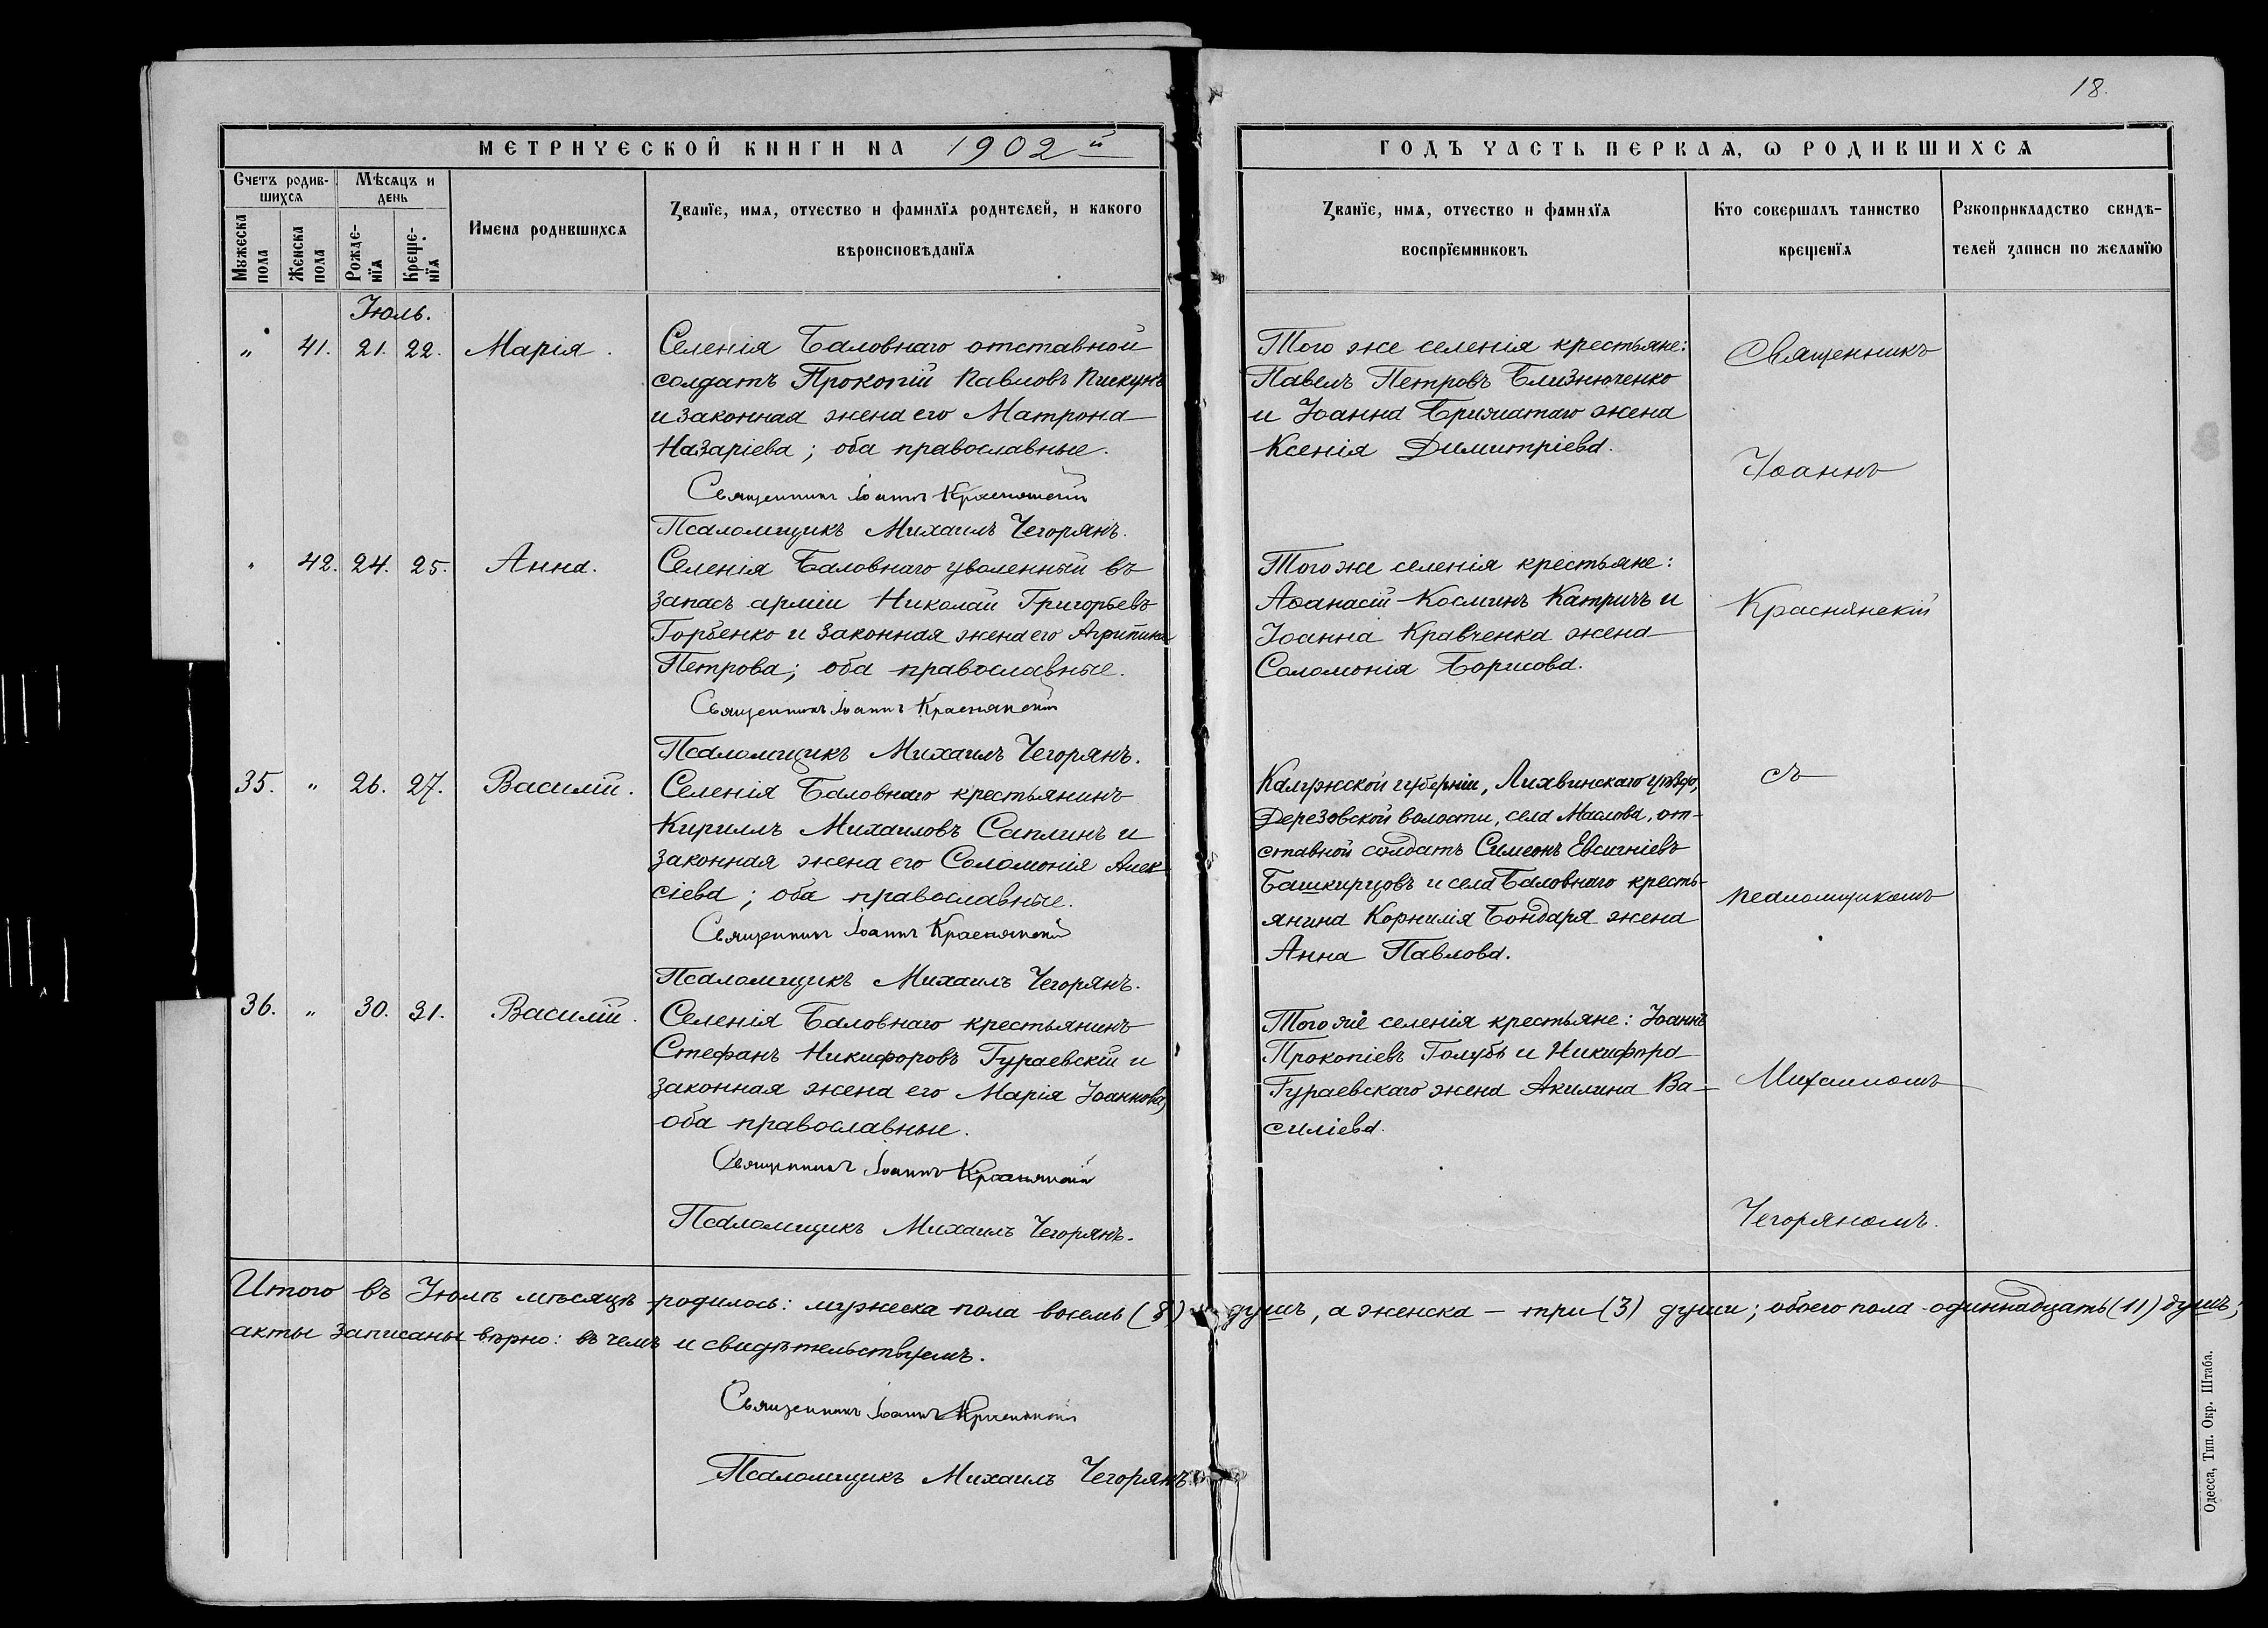 18.
МЕТРИЧЕСКОЙ КНИГИ НА 1902й
ГОДЪ ЧАСТЬ ПЕРВАЯ, Ѡ РОДИВШИХСЯ
Счетъ родив-
шихся
Мѣсяцъ и
день
Мужеска
пола
Женска
пола
Рожде-
нїя
Креще-
нїя
Имена родившихся
Званїе, имя, отчество и фамилїя родителей, и какого
вѣроисповѣданїя
Званїе, имя, отчество и фамилїя
воспрїемниковъ
Кто совершалъ таинство
крещенїя
Рукоприкладство свидѣ-
телей записи по желанїю
Іюль.
" 41. 21. 22. Марія.
Селенія Баловнаго отставной
солдатъ Прокопій Павловъ Пискунъ
и законная жена его Матрона
Назаріева; оба православные.
Священникъ Іоаннъ Краснянскій
Псаломщикъ Михаилъ Чегорянъ.
Того же селенія крестьяне:
Павелъ Петровъ Близнюченко
и Іоанна жена
Ксенія Димитріева.
" 42. 24. 25. Анна.
Селенія Баловнаго уволенный въ
запасъ арміи Николай Григорьевъ
Горбенко и законная жена его Агрипина
Петрова; оба православные.
Священникъ Іоаннъ Краснянскій
Псаломщикъ Михаилъ Чегорянъ.
Того же селенія крестьяне:
Аѳанасій Косминъ Катричъ и
Іоанна Кравченка жена
Соломонія Борисова.
35. " 26. 27. Василій.
Селенія Баловнаго крестьянинъ
Кириллъ Михаиловъ Саплинъ и
законная жена его Соломонія Алек-
сіева; оба православные.
Священникъ Іоаннъ Краснянскій
Псаломщикъ Михаилъ Чегорянъ.
Калужской губерніи, Лихвинскаго уѣзда,
Дерезовской волости, села Маслова, от-
ставной солдатъ Симеонъ Евсигніевъ
Башкирцовъ и села Баловнаго кресть-
янина Корнилія Бондаря жена
Анна Павлова.
36. " 30. 31. Василій.
Селенія Баловнаго крестьянинъ
Стефанъ Никифоровъ Гураевскій и
законная жена его Марія Іоаннова,
оба православные.
Священникъ Іоаннъ Краснянскій
Псаломщикъ Михаилъ Чегорянъ.
Того же селенія крестьяне: Іоаннъ
Прокопіевъ Голубъ и Никифора
Гураевскаго жена Акилина Ва-
силіева.
Священникъ
Іоаннъ
Краснянскій
съ
псаломщикомъ
Михаиломъ
Чегоряномъ.
Итого въ Іюлѣ мѣсяцѣ родилось: мужеска пола восемь (8) душъ, а женска – три (3) души; обоего пола одиннадцать (11) душъ;
акты записаны вѣрно: въ чемъ и свидѣтельствуемъ.
Священникъ Іоаннъ Краснянскій
Псаломщикъ Михаилъ Чегорянъ.
Одесса, Тип. Окр. Штаба.